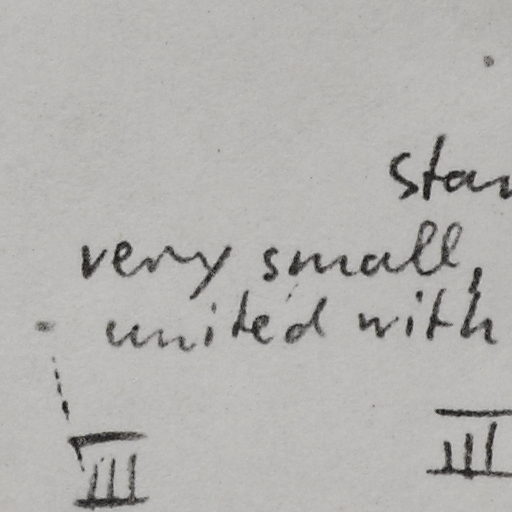 very small,
united with
III
III